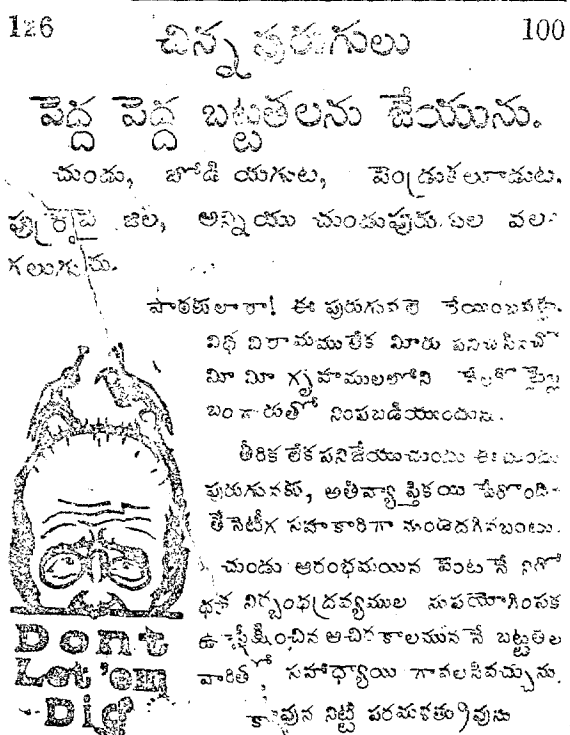 126 100
చిన్న పురుగులు
పెద్ద పెద్ద బట్టతలను జేయును.
చుండు, బోడి యగుట, వెండ్రుకలూడుట,
జిల, అన్నియు వల
గలుగును.
పాఠకులారా! ఈ
విధ విరామము లేక మీరు
మీ మీ గృహములలోని
బంగారుతో నింపబడియుండును.
తీరిక లేక పనిచేయుచుండు ఈ చుండు
పురుగునకు, అతివ్యాప్తికయి పేరొంది-
తేనెటీగ సహకారిగా నుండదగినబంటు.
చుండు ఆరంభమయిన వెంటనే నిరో
ధక నిర్బంధద్రవ్యముల నుపయోగింపక
ఉపేక్షించిన అచిరకాలముననే బట్టతల
వారితో సహాధ్యాయి గావలసివచ్చును.
కావున నిట్టి పరమశత్రువును
Dont
Let 'em
Dig